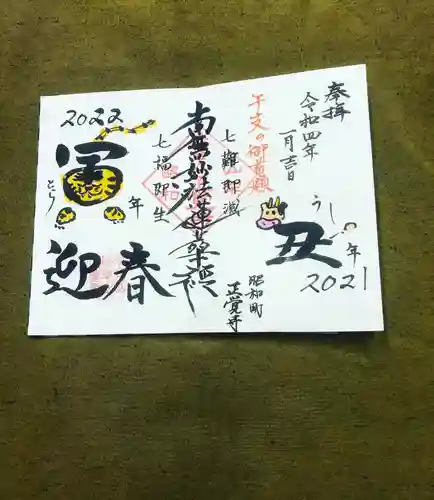 奉拝
令和四年
一月吉日
干支の御首題
うし
丑年
2021
七難即滅
南無妙法蓮華経
七福即生
昭和町
正覚寺
2022
寅年
とら
迎春